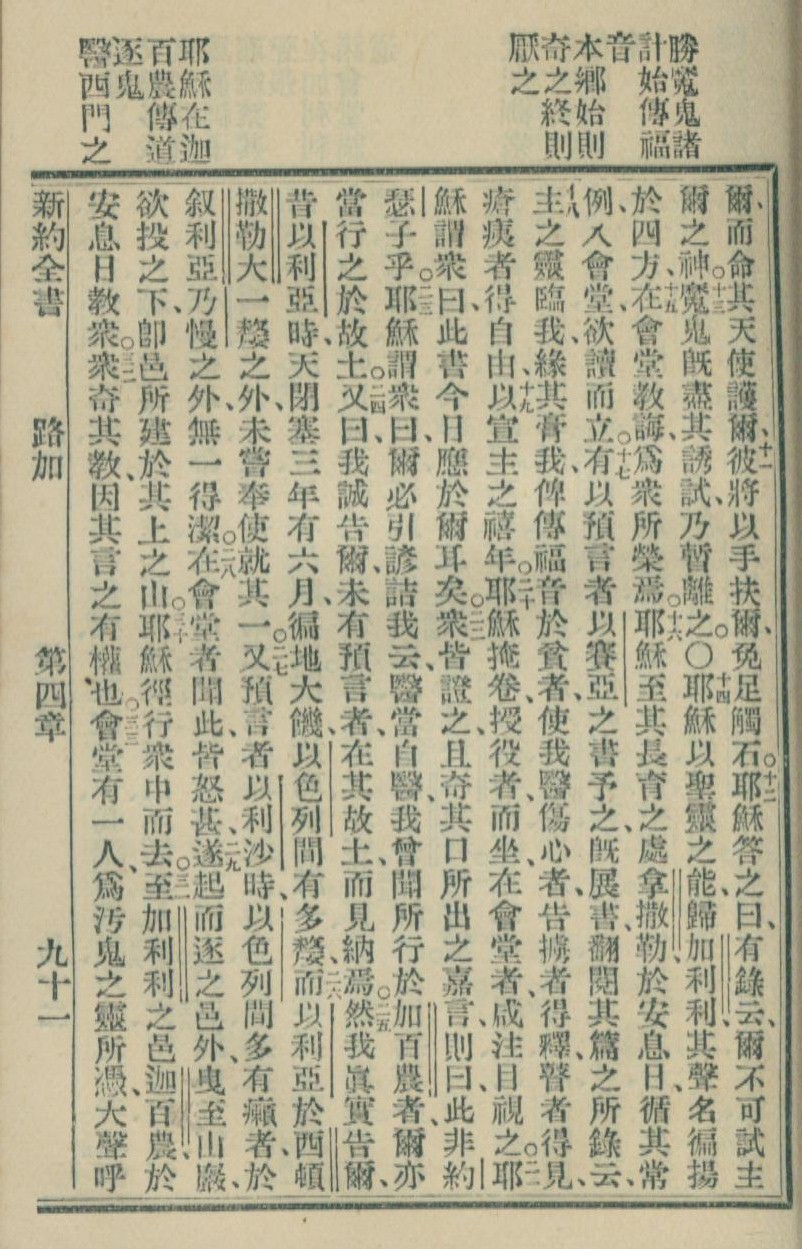 勝魔鬼諸
計始傳福
音
本鄉始則
奇之終則
厭之
耶穌在迦
百農傳道
逐鬼
醫西門之
爾、而命其天使護爾、十一彼將以手扶爾、免足觸石○十二耶穌答之曰、有錄云、爾不可試主
爾之神○十三魔鬼旣盡其誘試、乃暫離之○○十四耶穌以聖靈之能、歸加利利、其聲名徧揚
於四方、十五在會堂教誨、爲衆所榮焉○十六耶穌至其長育之處拿撒勒、於安息日、循其常
例、入會堂、欲讀而立○十七有以預言者以賽亞之書予之、旣展書、翻閱其篇之所錄云、
十八主之靈臨我、緣其膏我、俾傳福音於貧者、使我醫傷心者、告擄者得釋、瞽者得見、
瘡痍者得自由、十九以宣主之禧年○二十耶穌掩卷、授役者而坐、在會堂者、咸注目視之○二一耶
穌謂衆曰、此書今日應於爾耳矣○二二衆皆證之、且奇其口所出之嘉言、則曰、此非約
瑟子乎○二三耶穌謂衆曰、爾必引諺詰我云、醫當自醫、我曾聞所行於加百農者、爾亦
當行之於故土○二四又曰、我誠告爾、未有預言者、在其故土而見納焉○二五然我眞實告爾、
昔以利亞時、天閉塞三年有六月、徧地大饑、以色列間有多嫠、二六而以利亞於西頓
撒勒大一嫠之外、未嘗奉使就其一○二七又預言者以利沙時、以色列間多有癩者、於
叙利亞乃慢之外、無一得潔○二八在會堂者聞此、皆怒甚、二九遂起而逐之邑外、曳至山巖、
欲投之下、卽邑所建於其上之山○三十耶穌徑行衆中而去○三一至加利利之邑迦百農、於
安息日教衆○三二衆奇其教、因其言之有權也○三三會堂有一人、爲汚鬼之靈所憑、大聲呼
新約全書　路加　第四章　九十一